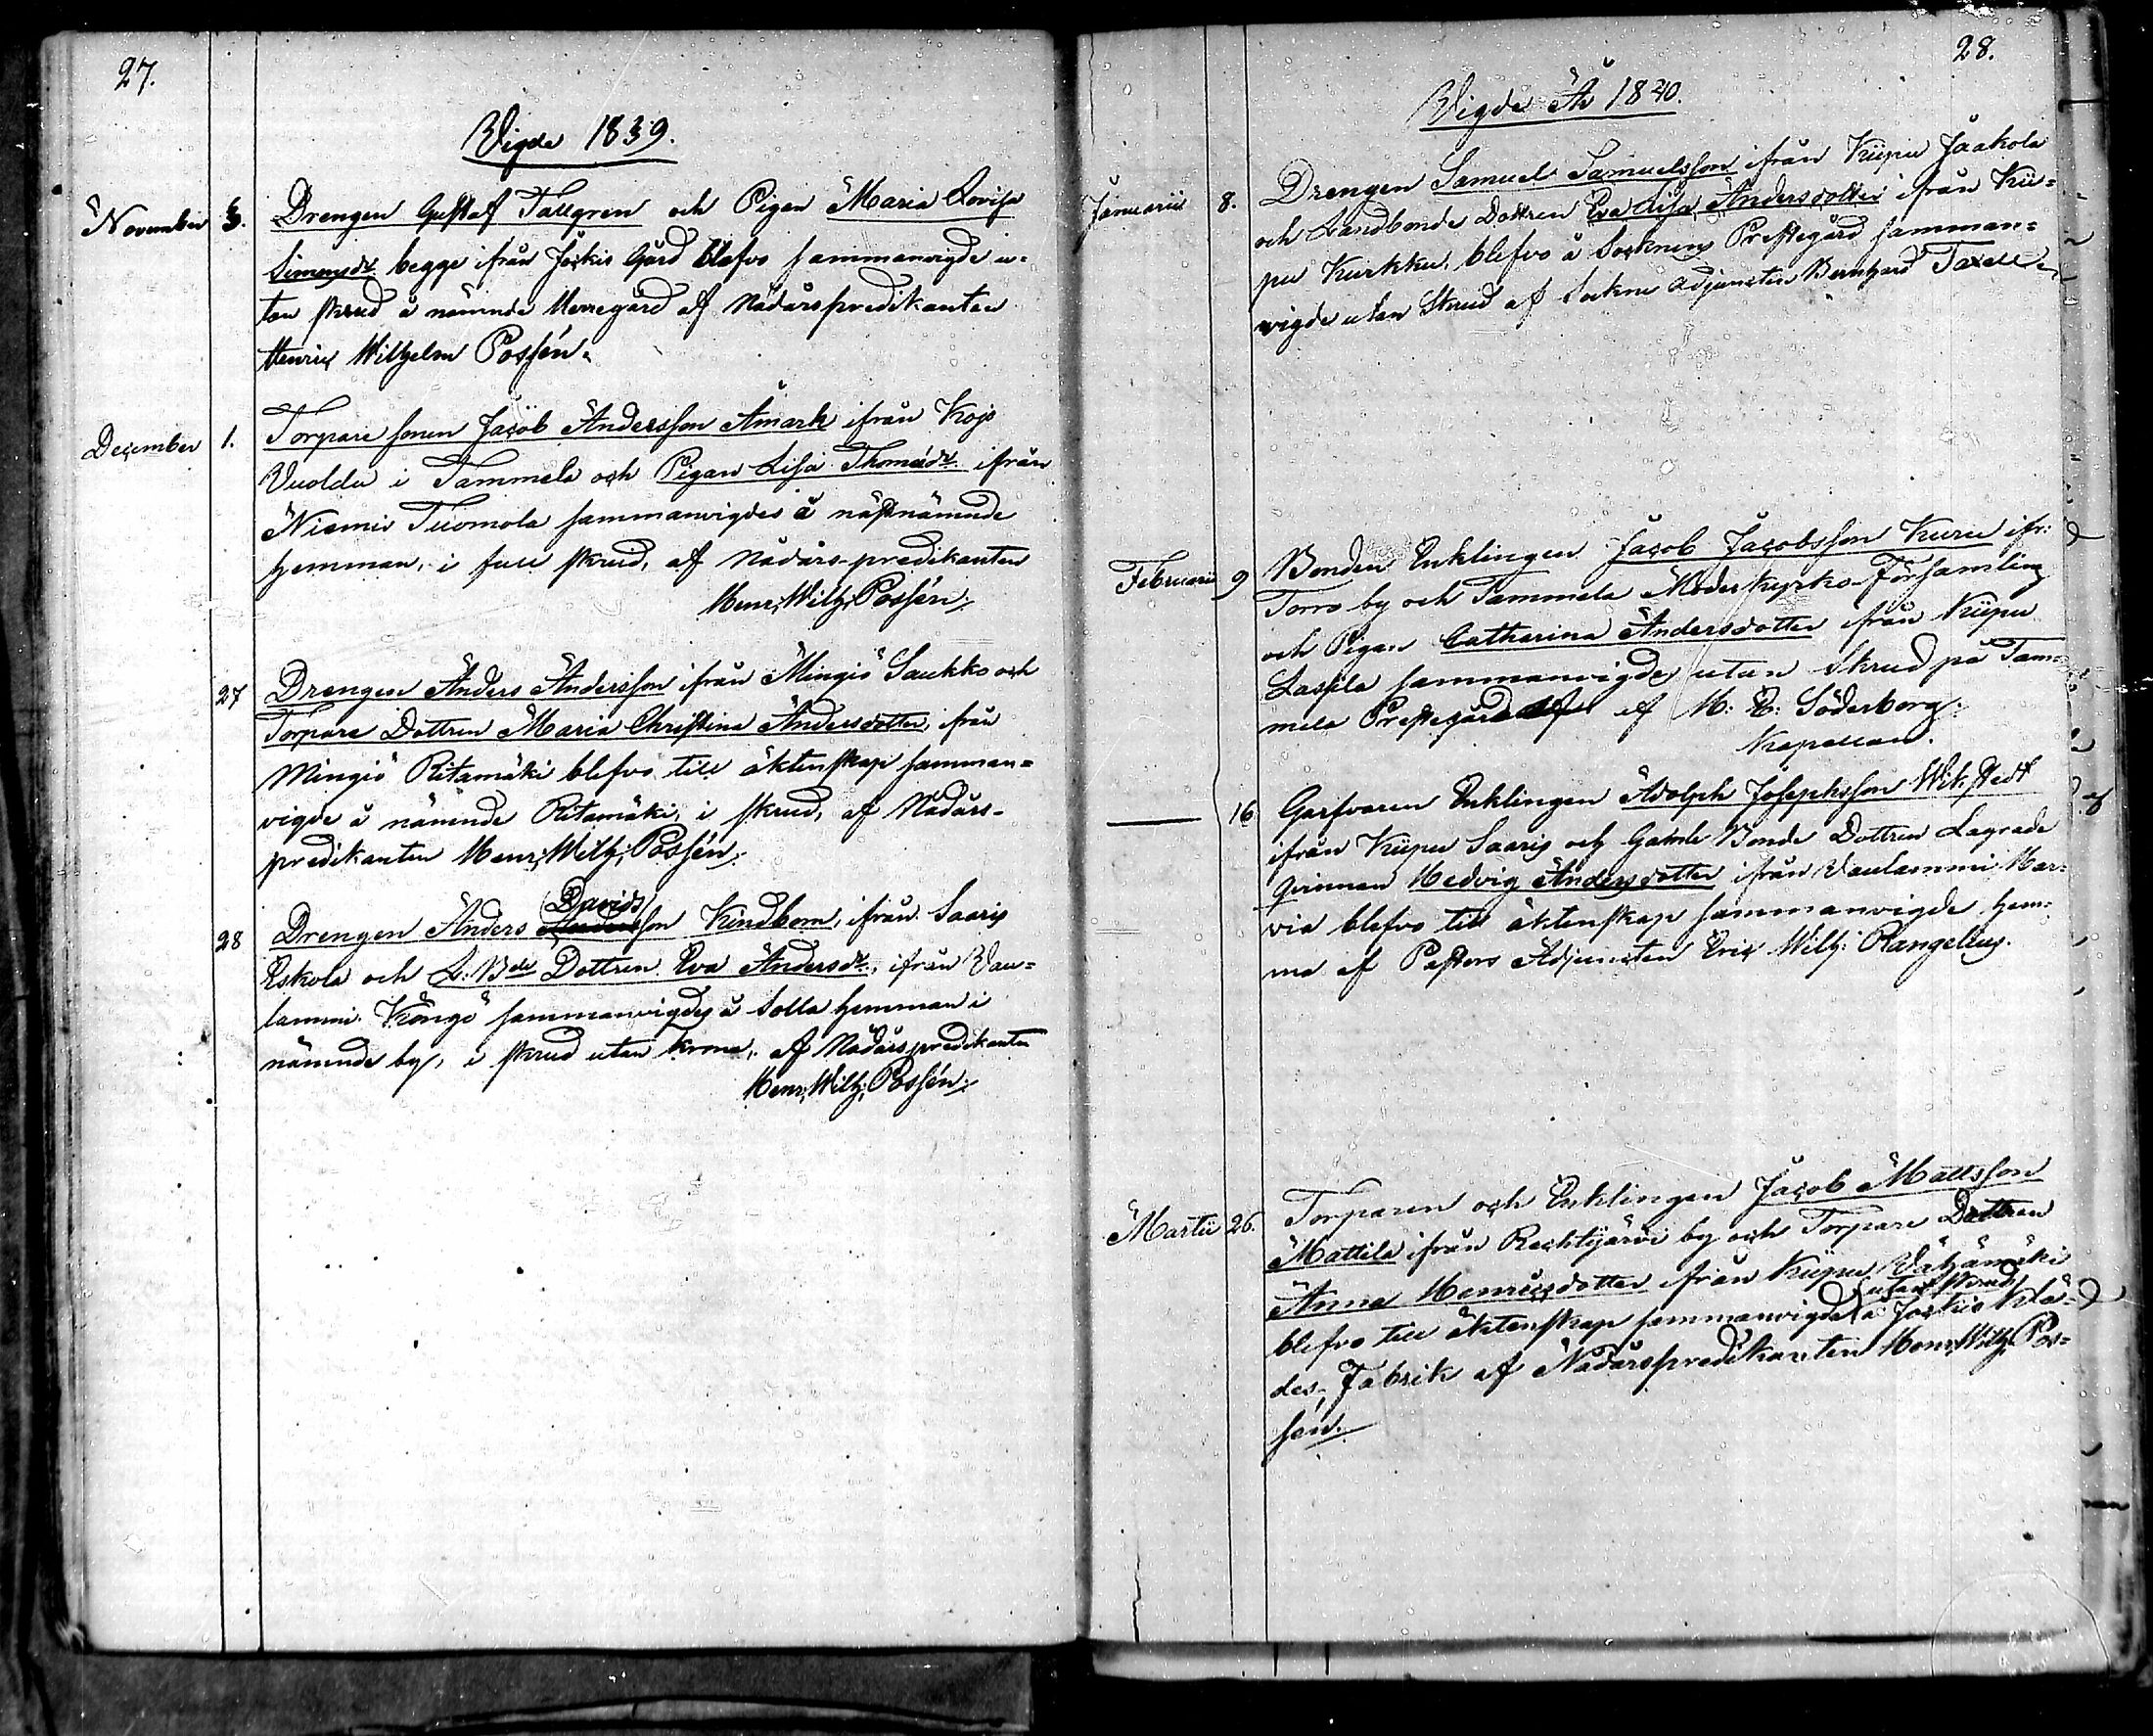 27.
Vigde 1839.
November 3. Drengen Gustaf Tallgren och Pigan Maria Lovisa
Simonsdr begge ifrån Jockis Gård blefvo sammanvigde u-
tan skrud å nämnde Herregård af Nådårspredikanten
Henric Wilhelm Possén.
December 1. Torpare sonen Jacob Andersson Amark ifrån Kojo
Vuolda i Tammela och Pigan Lisa Thomædr ifrån
Niemis Tuomola sammanvigdes å näst nämnde
hemman, i full skrud, af Nådårs-predikanten
Henr: Wilh: Possén.
27 Drengen Anders Andersson ifrån Mingiö Saukko och
Torpare Dottren Maria Christina Andersdotter, ifrån
Mingiö Ritamäki blefvo till äktenskap samman-
vigde å nämnde Ritamäki, i skrud, af Nådårs-
predikanten Henr: Wilh: Possén.
Davids
28 Drengen Anders Andersson Kindbom, ifrån Saaris
Eskola och L: Bde Dottren Eva Andersdr, ifrån Vau-
lammi Köngö sammanvigdes å Solla hemman i
nämnde by, i skrud utan krona, af Nådårspredikanten
Henr: Wilh: Possén.
28.
Vigde År 1840.
Januarii 8. Drengen Samuel Samuelsson ifrån Kiipu Jaakola
och Landbonde Dottren Eva Lisa Andersdotter ifrån Kii-
pu Kurkku, blefvo å Socknens Prestegård samman-
vigde utan Skrud af Sockne adjuncten Bernhard Taxell
Februarii 9 Bonden Enklingen Jacob Jacobsson Kuru ifr:
Torro by och Tammela Moderkyrko-Församling
och Pigan Catharina Andersdotter från Kiipu
Laspila sammanvigde utan Skrud på Tam-
mela Prestegård af M: E: Söderborg.
Kapellan.
16 Garfvaren Enklingen Adolph Josephsson Wikstedt
ifrån Kiipu Saaris och Gamle Bonde Dottren Lagrade
qvinnan Hedvig Andersdotter ifrån Vaulammi Mar-
via blefvo till äktenskap sammanvigde hem-
ma af Pastors Adjuncten Eric Wilh: Rangelius.
Martii 26. Torparen och Enklingen Jacob Mattsson
Mattila ifrån Rechtijärvi by och Torpare Dottren
Anna Henricsdotter ifrån Kiipu Vähämäki
utan skrud
blefvo till äktenskap sammanvigde å Jockis Klä-
des-Fabrik af Nådårspredikanten Henr: Wilh: Pos-
sén.